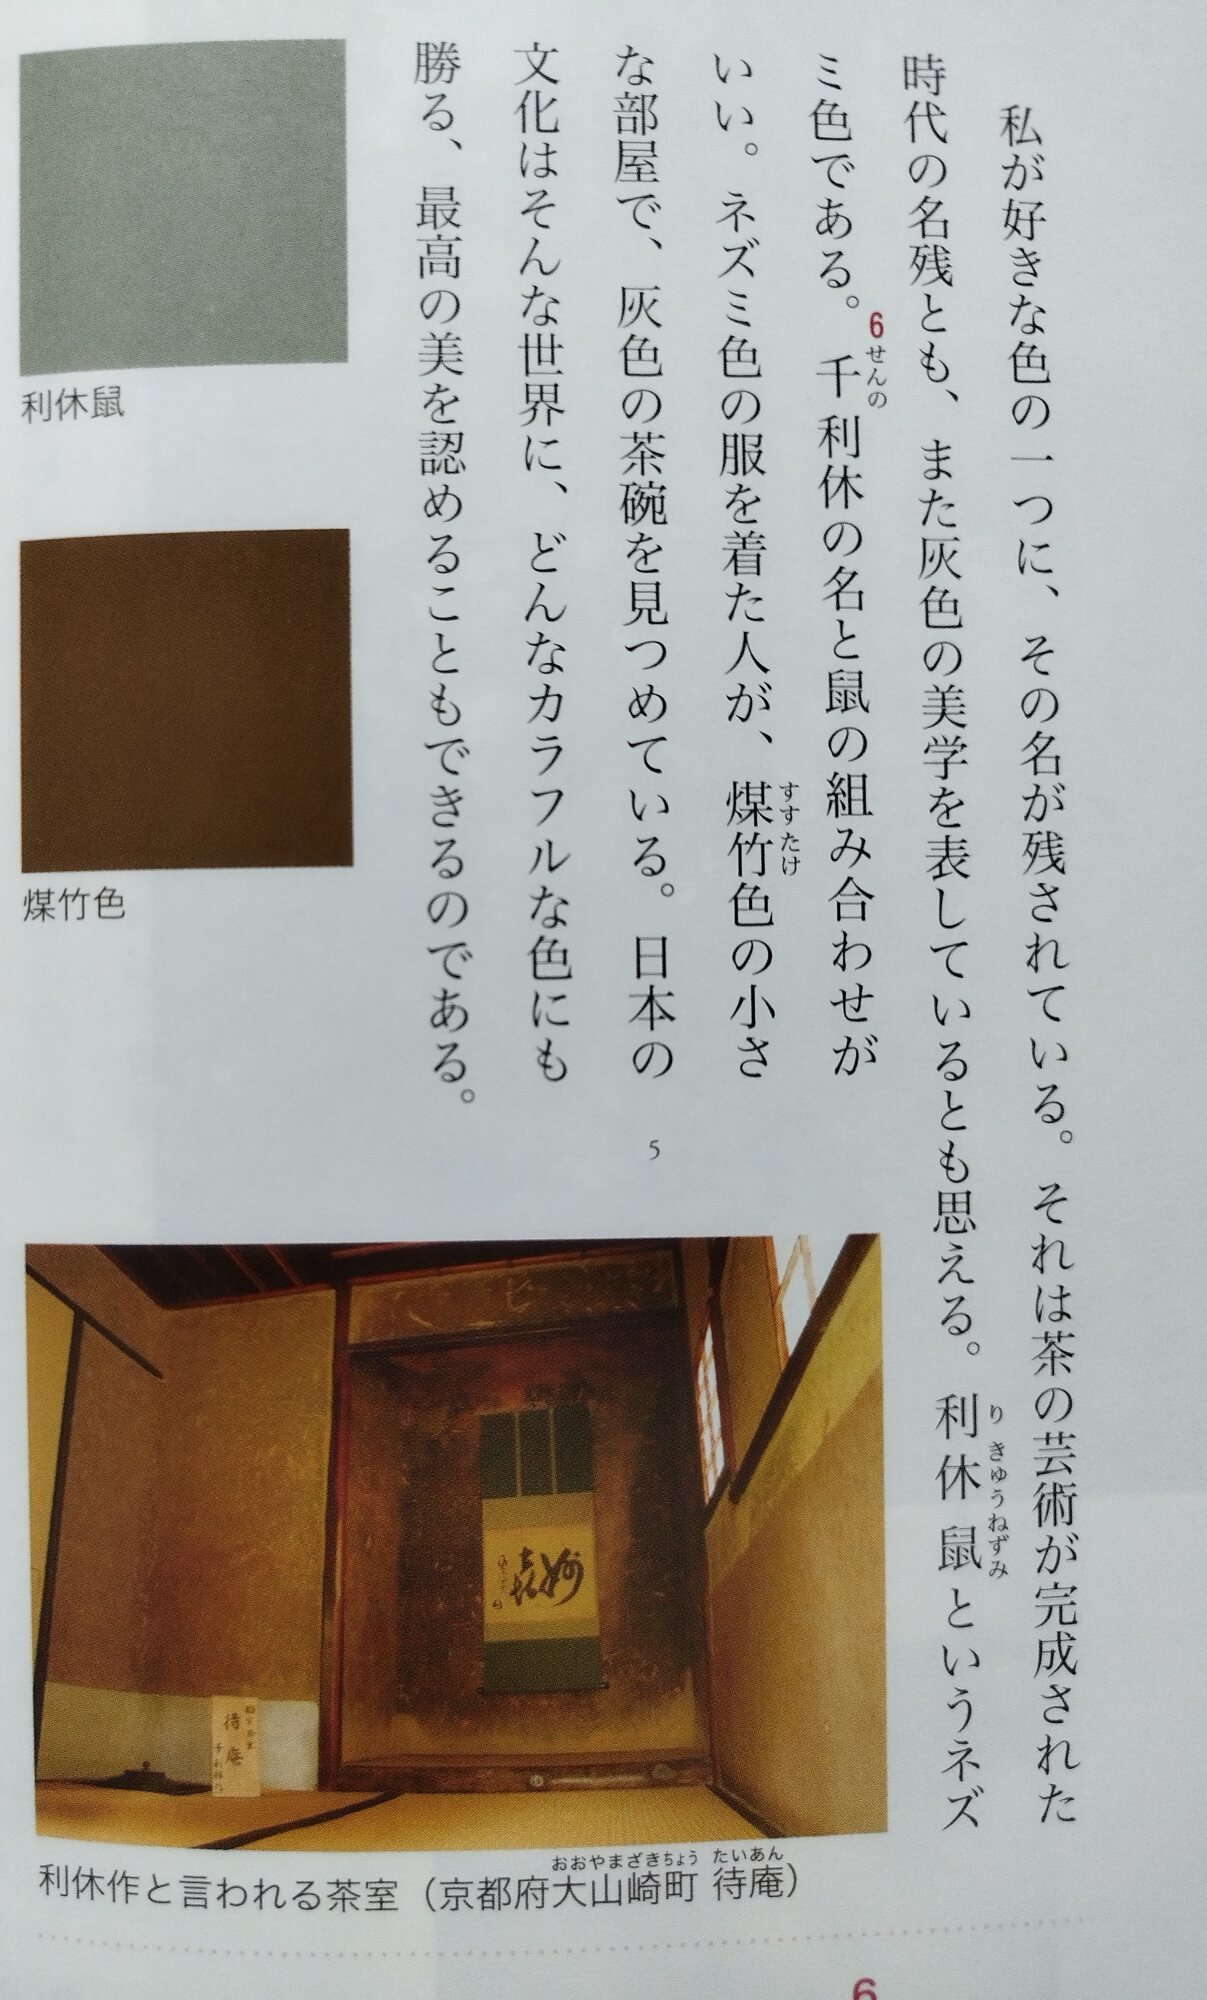 私が好きな色の一つに、その名が残されている。それは茶の芸術が完成された
時代の名残とも、また灰色の美学を表しているとも思える。利休鼠というネズ
りきゅうねずみ
ミ色である。千利休の名と鼠の組み合わせが
6
せんの
いい。ネズミ色の服を着た人が、煤竹色の小さ
すすたけ
な部屋で、灰色の茶碗を見つめている。日本の
5
文化はそんな世界に、どんなカラフルな色にも
勝る、最高の美を認めることもできるのである。
利休鼠
煤竹色
待庵
利休作と言われる茶室（京都府大山崎町 待庵）
おおやまざきちょう たいあん
6